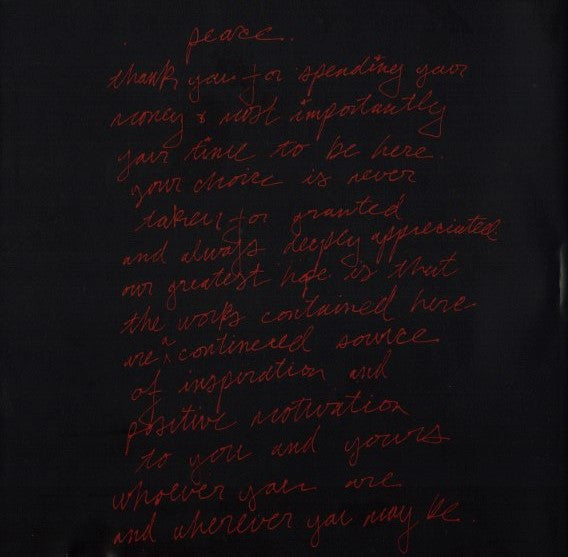 peace.
thank you for spending your
money & most importantly
your time to be here.
your choice is never
taken for granted
and always deeply appreciated
our greatest hope is that
the works contained here
are ^a continued source
of inspiration and
positive motivation
to you and yours
whoever you are
and wherever you may be.